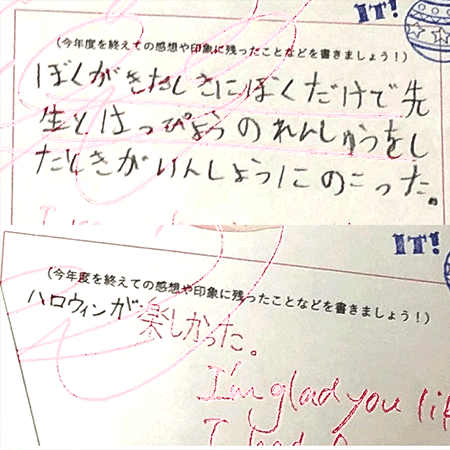 IT!
(今年度を終えての感想や印象に残ったことなどを書きましょう！)
ぼくがきたときにぼくだけで先
生とはっぴょうのれんしゅうをし
たときがいんしょうにのこった。
IT!
(今年度を終えての感想や印象に残ったことなどを書きましょう！)
ハロウィンが楽しかった。
I'm glad you li
I had